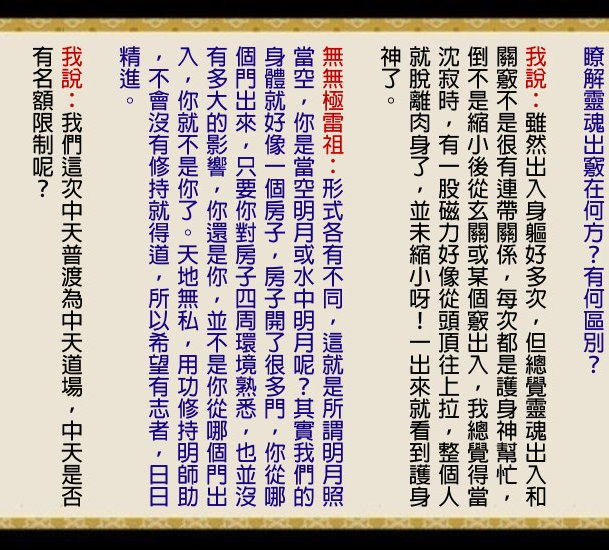 瞭解靈魂出竅在何方?有何區別?
我說:雖然出入身軀好多次,但總覺靈魂出入和
關竅不是很有連帶關係,每次都是護身神幫忙,
倒不是縮小後從玄關或某個竅出入,我總覺得當
沈寂時,有一股磁力好像從頭頂往上拉,整個人
就脫離肉身了,並未縮小呀!一出來就看到護身
神了。
無無極雷祖:形式各有不同,這就是所謂明月照
當空,你是當空明月或水中明月呢?其實我們的
身體就好像一個房子,房子開了很多門,你從哪
個門出來,只要你對房子四周環境熟悉,也並沒
有多大的影響,你還是你,並不是你從哪個門出
入,你就不是你了。天地無私,用功修持明師助
,不會沒有修持就得道,所以希望有志者,日日
精進。
我說:我們這次中天普渡為中天道場,中天是否
有名額限制呢?